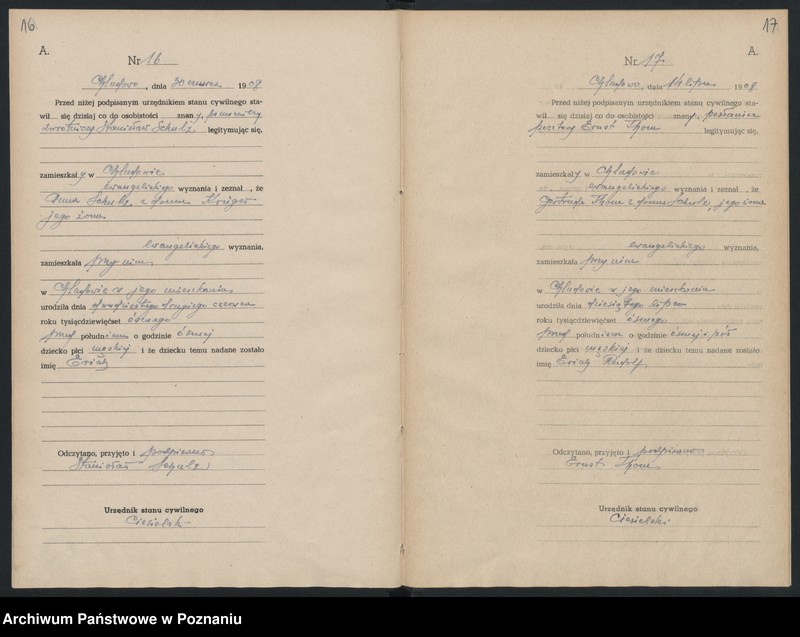 16
A.
Nr 16
, dnia 30 czerwca 1908
Przed niżej podpisanym urzędnikiem stanu cywilnego sta-
wił się dzisiaj co do osobistości znany, pomocnik
zwrotniczy Stanisław Schulz, legitymując się,
zamieszkały w
ewangelickiego wyznania i zeznał, że
Anna Schulz z domu Krüger
jego żona
ewangelickiego wyznania,
zamieszkała przy nim
w w jego mieszkaniu
urodziła dnia dwudziestego drugiego czerwca
roku tysiącdziewięćset ósmego
przed południem o godzinie ósmej
dziecko płci męskiej i że dziecku temu nadane zostało
imię Erich
Odczytano, przyjęto i podpisano
Stanisław Schulz
Urzędnik stanu cywilnego
Ciesielski
17
A.
Nr 17.
, dnia 14 lipca 1908
Przed niżej podpisanym urzędnikiem stanu cywilnego sta-
wił się dzisiaj co do osobistości znany, posłaniec
pocztowy Ernst legitymując się,
zamieszkały w
ewangelickiego wyznania i zeznał, że
z domu Schulz, jego żona
ewangelickiego wyznania,
zamieszkała przy nim
w w jego mieszkaniu
urodziła dnia dziesiątego lipca
roku tysiącdziewięćset ósmego
przed południem o godzinie ósmej i pół
dziecko płci męskiej i że dziecku temu nadane zostało
imię Erich Rudolf
Odczytano, przyjęto i podpisano
Ernst
Urzędnik stanu cywilnego
Ciesielski
Archiwum Państwowe w Poznaniu